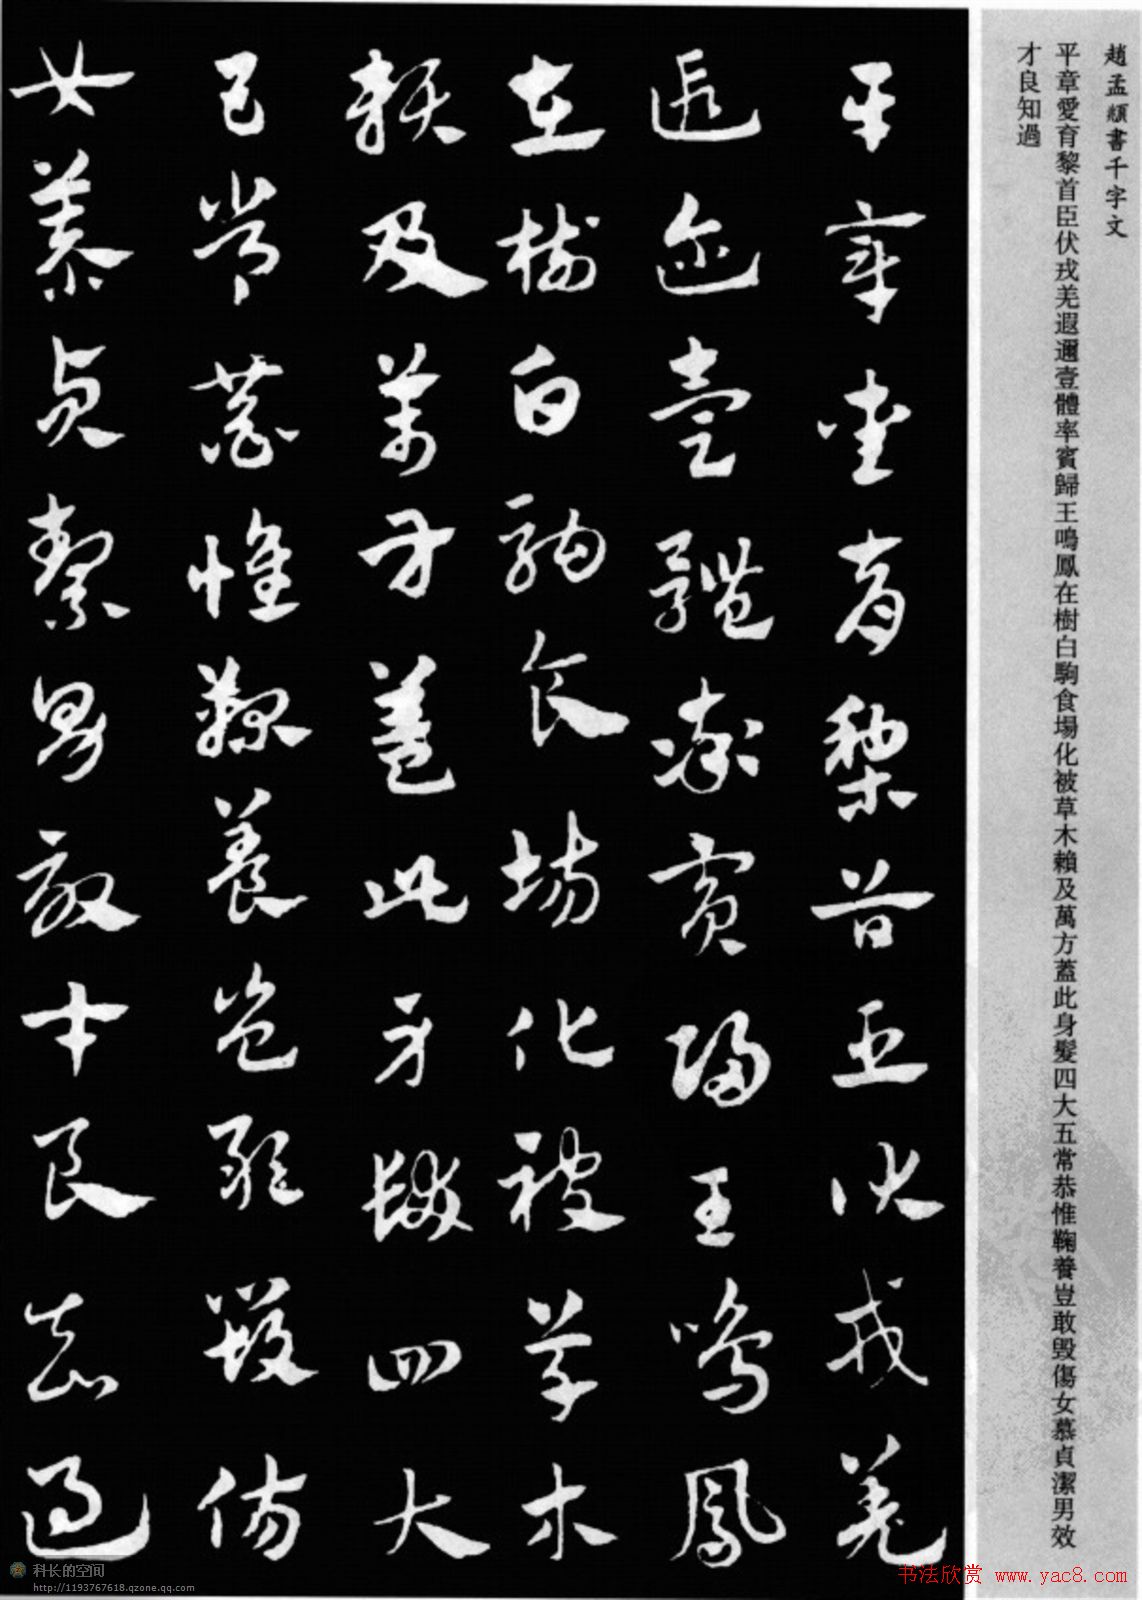 趙孟頫書千字文
平章愛育黎首臣伏戎羌遐邇壹體率賓歸王鳴鳳在樹白駒食場化被草木賴及萬方蓋此身髮四大五常恭惟鞠養豈敢毀傷女慕貞潔男效
才良知過
平章愛育黎首臣伏戎羌
遐邇壹體率賓歸王鳴鳳
在樹白駒食場化被草木
賴及萬方蓋此身髮四大
五常恭惟鞠養豈敢毀傷
女慕貞絜男效才良知過
科长的空间
http://1193767618.qzone.qq.com
书法欣赏 www.yac8.com